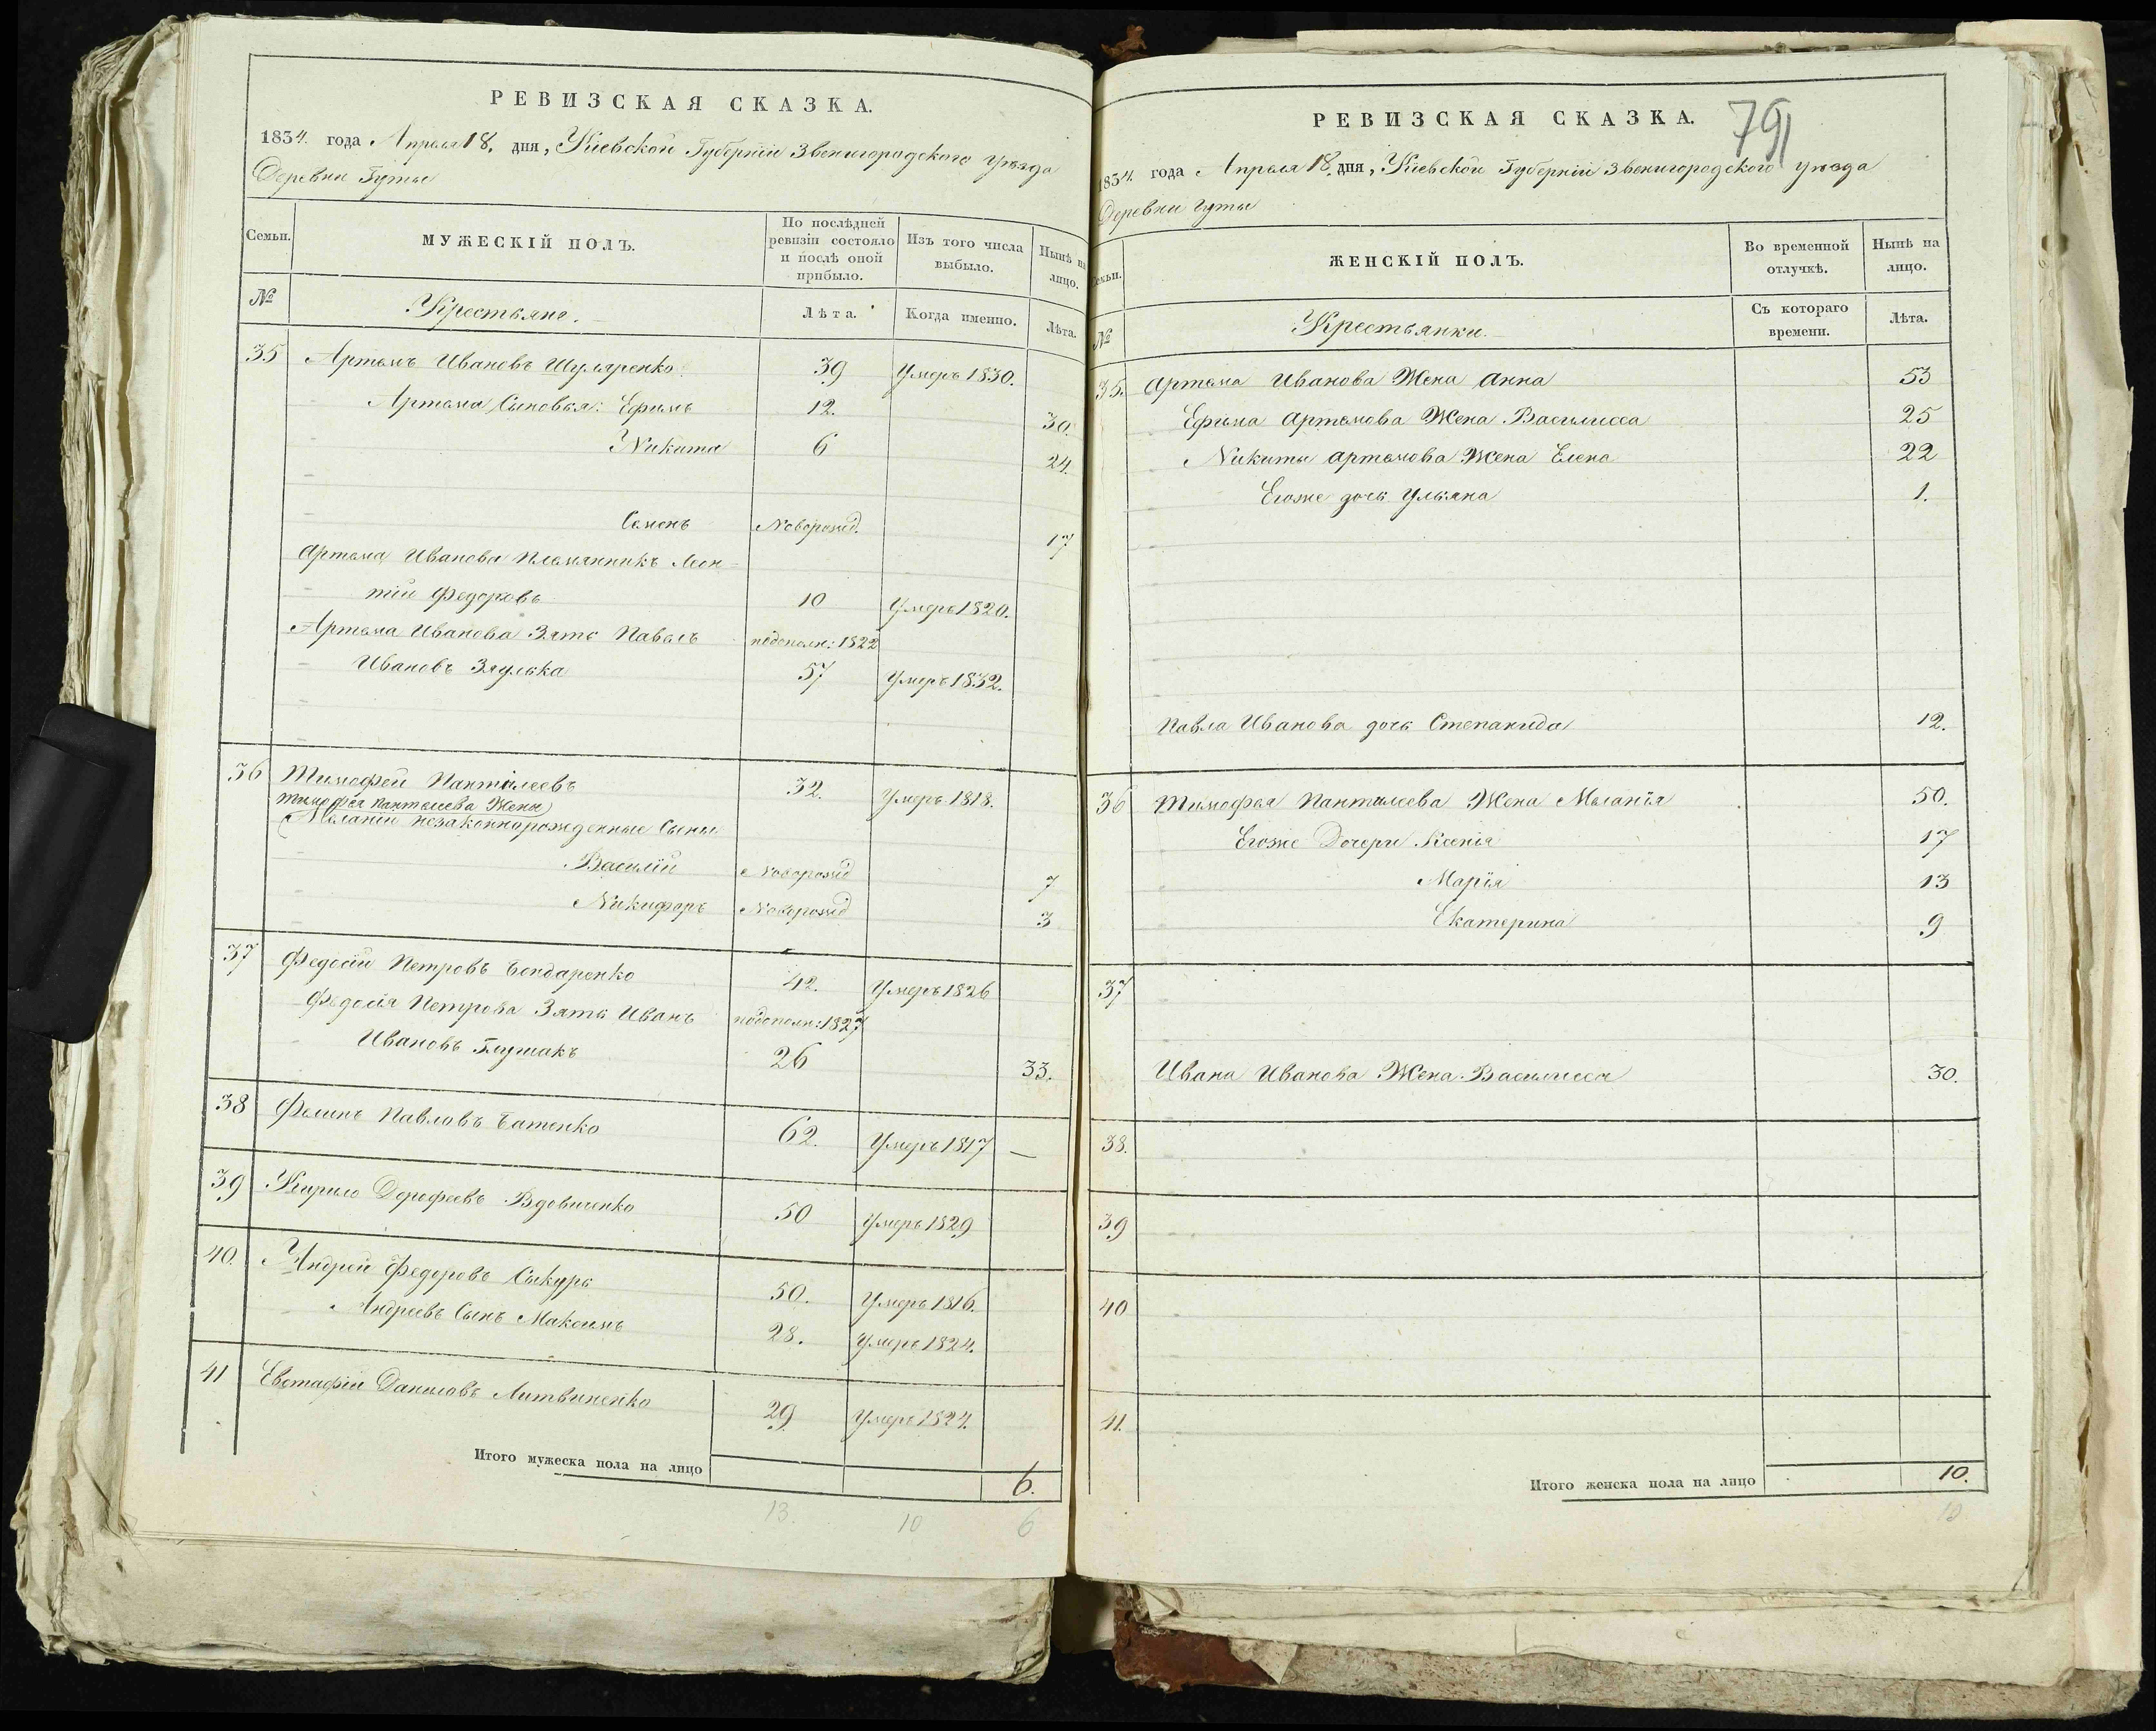 РЕВИЗСКАЯ СКАЗКА.
1834. года Апреля 18. дня, Киевской Губерніи Звенигородского уѣзда
Деревни Гуты
Семьи. МУЖЕСКІЙ ПОЛЪ. По послѣдней ревизіи состояло и послѣ оной прибыло. Изъ того числа выбыло. Нынѣ на лицо.
№ Крестьяне. Лѣта. Когда именно. Лѣта.
35 Артемъ Ивановъ Шуляренко 39 Умеръ 1830.
Артема Сыновья: Ефимъ 12. 30.
Никита 6 24.
Семенъ Новорожд. 17
Артема Иванова Племянникъ Леон-
тій Федоровъ 10 Умеръ 1820.
Артема Иванова Зять Павелъ подополн: 1822
Ивановъ Зяулька 57 Умеръ 1832.
36 Тимофей Пантілеевъ 32. Умеръ 1818.
Тимофея Пантелеева Жены
Меланіи незаконнорожденные Сыны
Василій Новорожд 7
Никифоръ Новорожд 3
37 Федосій Петровъ Бондаренко 42. Умеръ 1826
Федосія Петрова Зять Иванъ подополн: 1827
Ивановъ 26 33.
38 Филипъ Павловъ Батенко 62. Умеръ 1817 —
39 Кирило Дорофеевъ Вдовиченко 50 Умеръ 1829
40. Андрей Федоровъ Сикура 50. Умеръ 1816.
Андреевъ Сынъ Максимъ 28. Умеръ 1824.
41 Евстафій Даниловъ Литвиненко 29 Умеръ 1824.
Итого мужеска пола на лицо 6.
13. 10 6
791
РЕВИЗСКАЯ СКАЗКА.
1834. года Апреля 18. дня, Киевской Губерніи Звенигородского уѣзда
Деревни Гуты
Семьи. ЖЕНСКІЙ ПОЛЪ. Во временной отлучкѣ. Нынѣ на лицо.
№ Крестьянки. Съ котораго времени. Лѣта.
35. Артема Иванова Жена Анна 53
Ефима Артемова Жена Василисса 25
Никиты Артемова Жена Елена 22
Егоже дочь Ульяна 1.
Павла Иванова дочь Степанида 12.
36 Тимофея Пантилеева Жена Меланія 50.
Егоже Дочери Ксенія 17
Марія 13
Екатерина 9
37
Ивана Иванова Жена Василисса 30.
38.
39
40
41.
Итого женска пола на лицо 10.
10